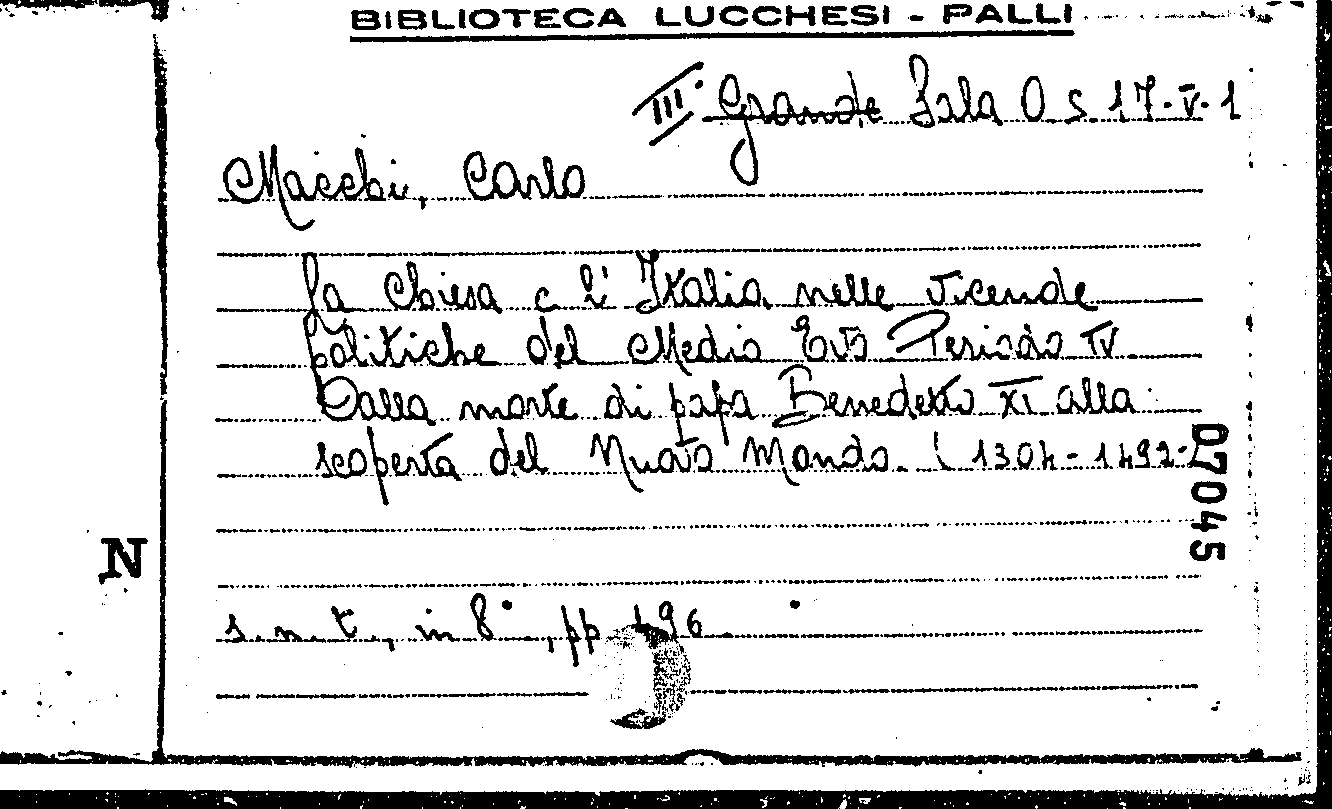 BIBLIOTECA LUCCHESI - PALLI
III. Grande Sala O. S. 17.V.1
Macchi, Carlo
La Chiesa e l'Italia nelle vicende
politiche del Medio Evo Periodo IV
Dalla morte di papa Benedetto XI alla
scoperta del Nuovo Mondo. (1304-1492-)
07045
N
s.n.t., in 8°, pp. 496